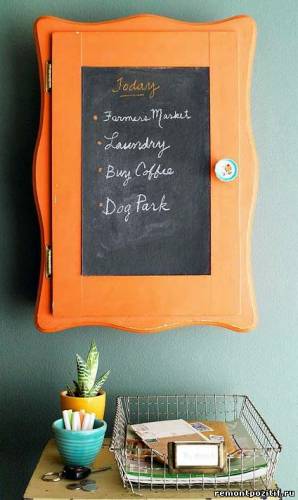 Today
Farmers Market
Laundry
Buy Coffee
Dog Park
remontpozitif.ru